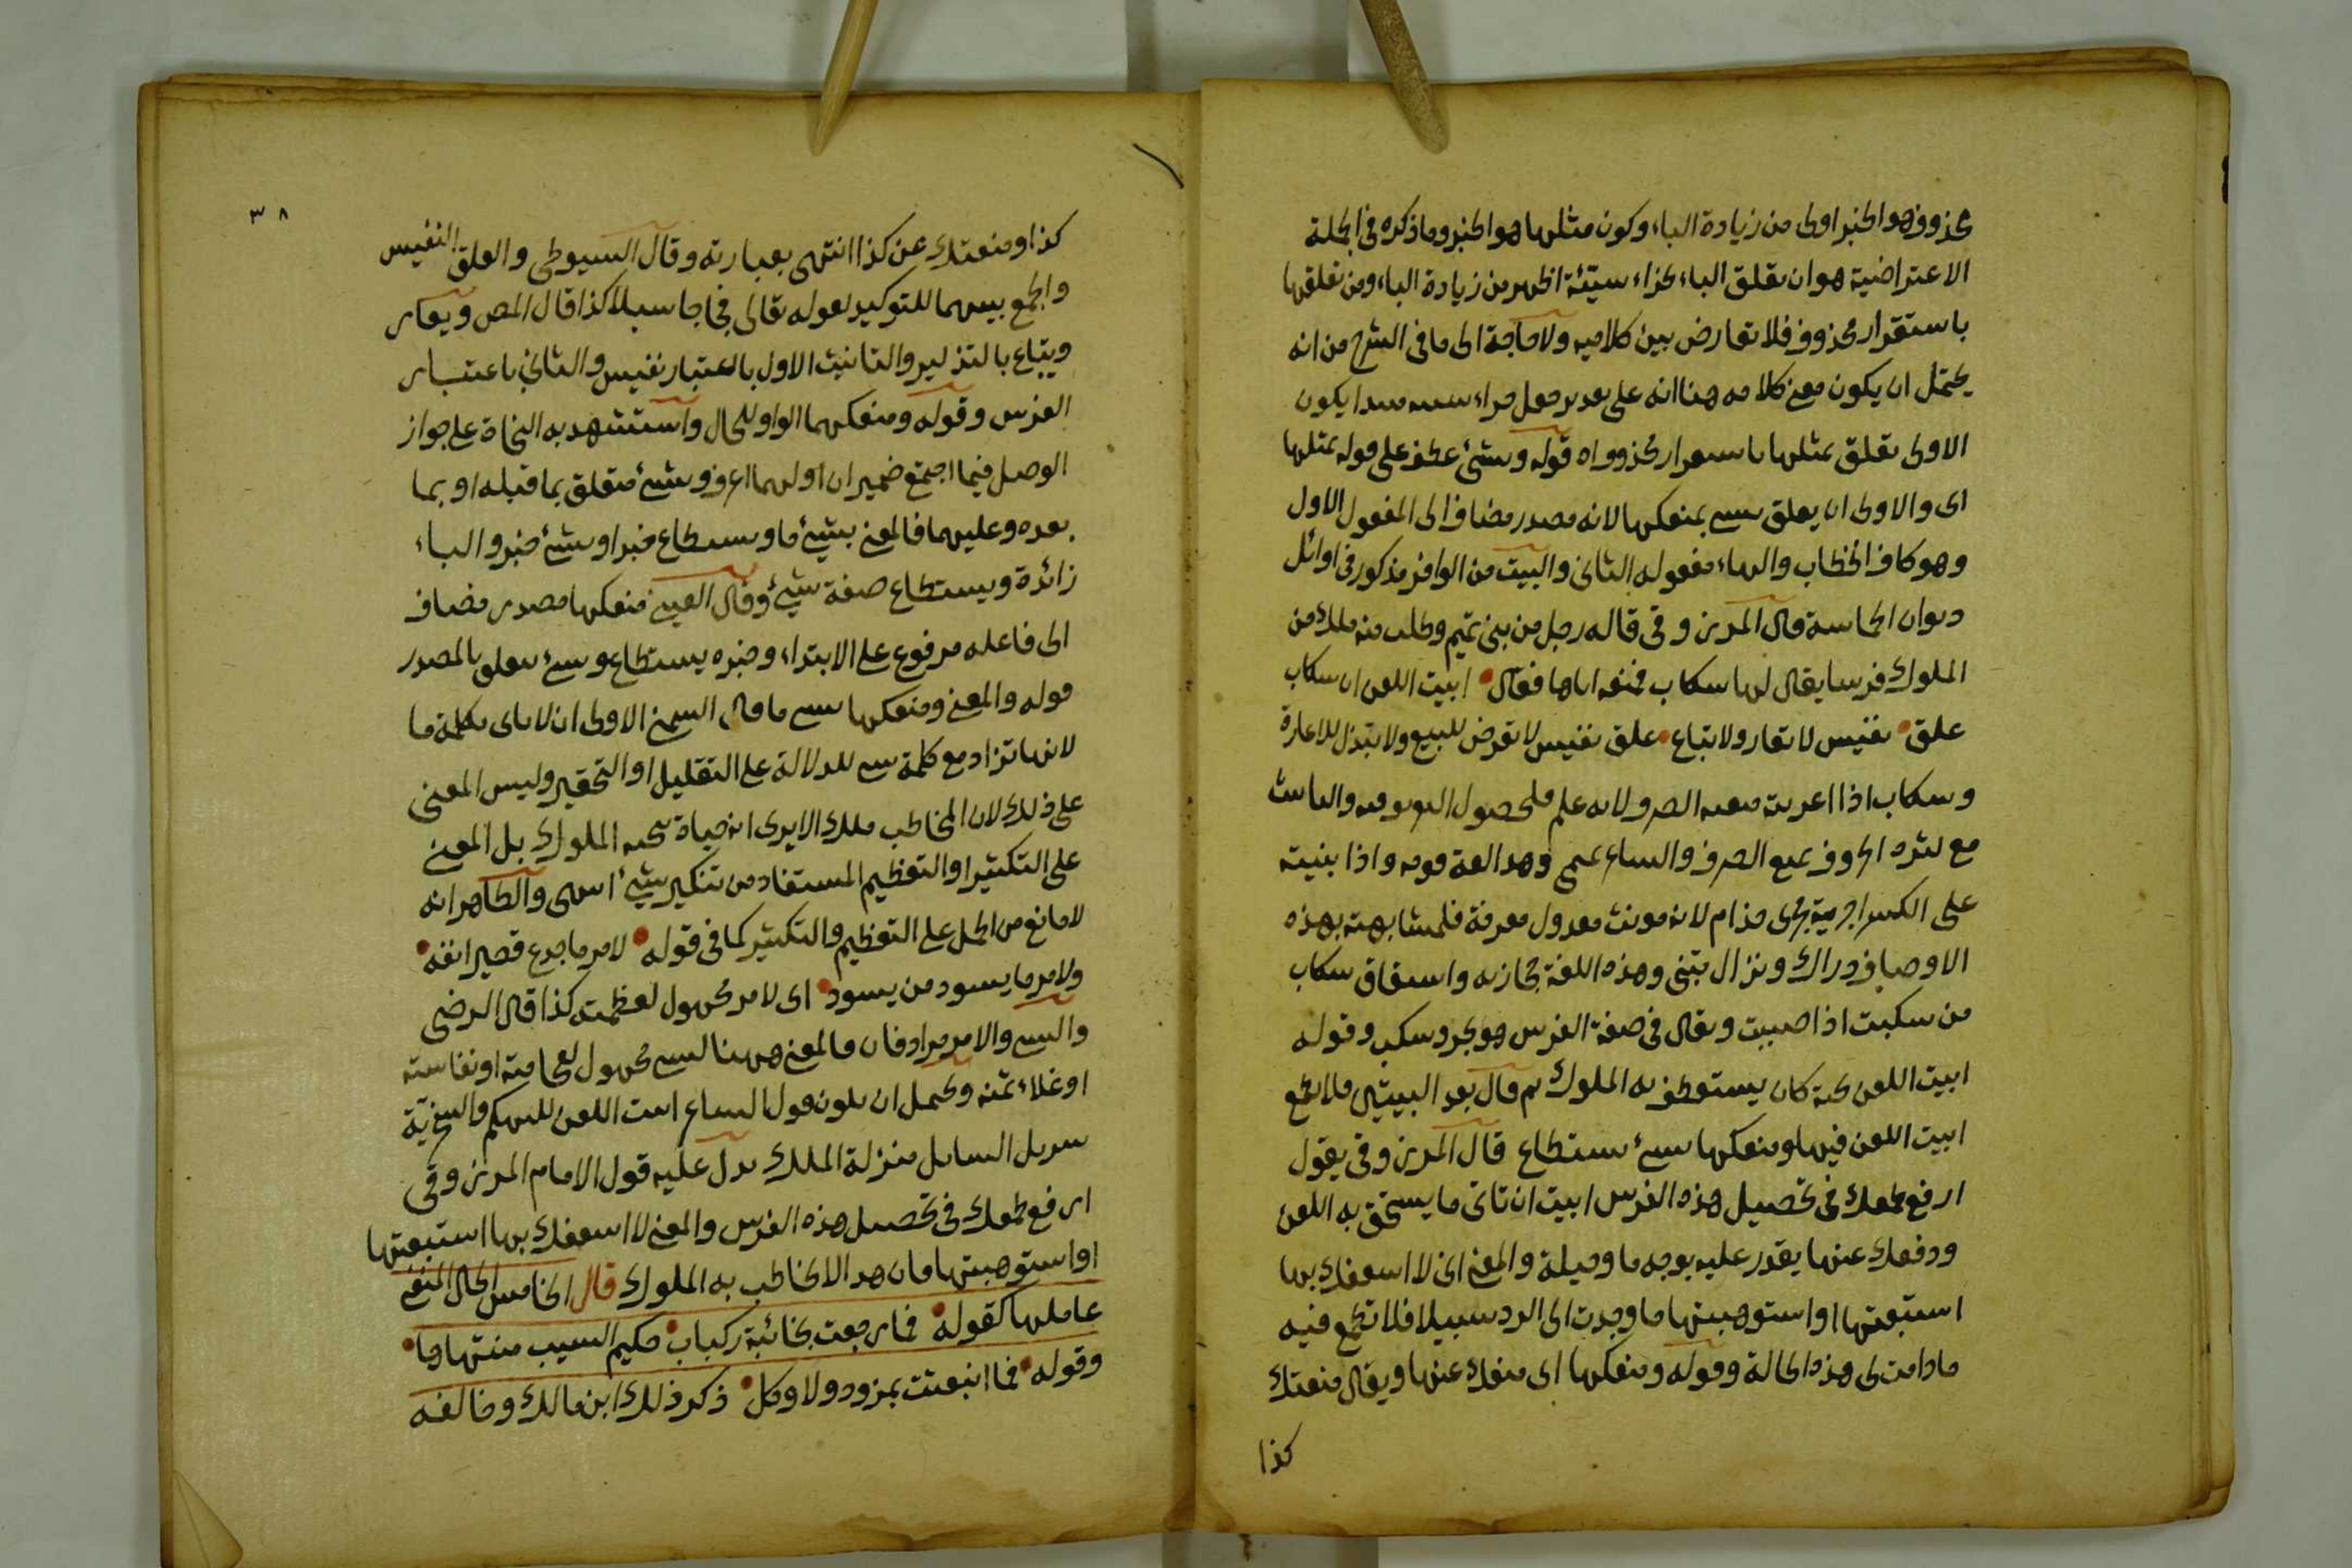 محذوف هو الخبر اولى من زيادة الباء وكون مثلها هو الخبر وما ذكره في الجملة
الاعتراضية هو ان تعلق الباء بجزاء سيئة اظهر من زيادة الباء ومن تعلقها
باستقرار محذوف فلا تعارض بين كلاميه ولا حاجة الى ما في الشرح من انه
يحتمل ان يكون معنى كلامه هنا انه على تقدير جعل جزاء سيئة مبتدا يكون
الاولى تعلق بمثلها باستقرار محذوف اه قوله وبشئ عطف على قوله بمثلها
اى والاولى ان يعلق بشئ بمنعكها لانه مصدر مضاف الى المفعول الاول
وهو كاف الخطاب والهاء مفعوله الثانى والبيت من الوافر مذكور في اوائل
ديوان الحماسة قال المرزوقى قاله رجل من بنى تميم وطلب منه ملك من
الملوك فرسا يقال لها سكاب فمنعه اياها فقال ابيت اللعن ان سكاب
علق نفيس لا تعار ولا تباع علق نفيس لا تعرض للبيع ولا تبتذل للاعارة
وسكاب اذا اعربته منعته الصرف لانه علم وحصول التعريف فيه والتانيث
مع كثرة الحروف يمنع الصرف والبناء وهذا لغة قومه واذا بنيته
على الكسر اجريته مجرى حذام لانه مونث معدول معرفة فلمشابهته بهذه
الاوصاف دراك ونزال بنى وهذه اللغة حجازية واشتقاق سكاب
من سكبت اذا صببت ويقال في صفة الفرس هو بحر وسكب وقوله
ابيت اللعن تحية كان يستعطف به الملوك ثم قال بعد البيتين فلا تطمع
ابيت اللعن فيها ومنعكها بشئ يستطاع قال المرزوقى يقول
ارفع طمعك في تحصيل هذه الفرس ابيت ان تاتى ما يستحق به اللعن
ودفعك عنها يقدر عليه بوجه ما وحيلة والمعنى انى لا اسعفك بها
استبعتها او استوهبتها ما وجدت الى الرد سبيلا فلا تطمع فيه
ما دامت لى هذه الحالة وقوله ومنعكها اى منعك عنها ويقال منعتك
كذا
٣٨
كذا ومنعتك عن كذا انتهى بعبارته وقال السيوطى والعلق النفيس
والجمع بينهما للتوكيد لقوله تعالى فجاجا سبلا كذا قال المص ويعار
ويتباع بالتذكير والتانيث الاول باعتبار نفيس والثانى باعتبار
الفرس وقوله ومنعكها الواو للحال واستشهد به النحاة على جواز
الوصل فيما اجتمع ضميران اولهما اعرف وبشئ متعلق بما قبله او بما
بعده وعليهما فالمعنى بشئ ما ويستطاع خبر او بشئ خبر والباء
زائدة ويستطاع صفة شئ وقال العينى منعكها مصدر مضاف
الى فاعله مرفوع على الابتداء وخبره يستطاع وبشئ متعلق بالمصدر
قوله والمعنى ومنعكها بشئ ما قال الشمنى الاولى ان لا ياتى بكلمة ما
لانها تزاد مع كلمة شئ للدلالة على التقليل او التحقير وليس المعنى
على ذلك لان المخاطب ملك الا يرى انه حياه تحية الملوك بل المعنى
على التكثير او التعظيم المستفاد من تنكير شئ انتهى والظاهر انه
لا مانع من الحمل على التعظيم والتكثير كما في قوله لامر ما جدع قصير انفه
ولامر ما يسود من يسود اى لامر مجهول لعظمته كذا قال الرضى
والشئ والامر مرادفان فالمعنى ههنا لشئ مجهول لفخامته او نفاسته
او غلاء ثمنه ويحتمل ان يكون قول الشاعر ابيت اللعن للتهكم والسخرية
بتنزيل السائل منزلة الملك يدل عليه قول الامام المرزوقى
ارفع طمعك في تحصيل هذه الفرس والمعنى لا اسعفك بها استبعتها
او استوهبتها فان هذا لا يخاطب به الملوك قال الخامس الحال المنفى
عاملها كقوله فما رجعت بخائبة ركاب حكيم السيب منتهاها
وقوله فما انبعثت بمزود ولا وكل ذكر ذلك ابن مالك وخالفه